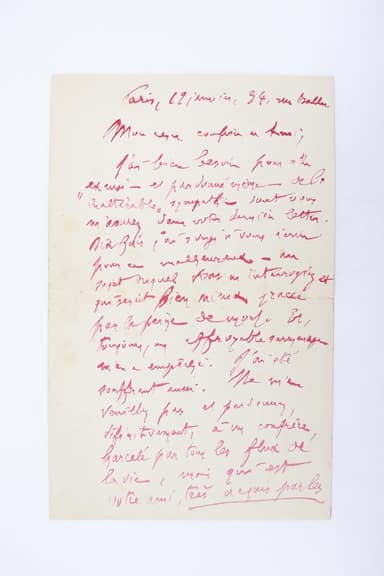 Paris, 12 janvier, 34, rue Ballu
Mon cher confrère et ami,
J'ai bien besoin pour être
excusé — et pardonné même — de la
"inaltérable" sympathie dont vous
m'assurez dans votre dernière lettre.
Dix fois j'ai songé à vous écrire
pour ce malheureux — au
sujet duquel vous m'interrogiez et
qui serait bien mieux placé
par la
toujours, un effroyable surmenage
m'en a empêché. J'ai été
souffrant aussi. Ne m'en
veuillez pas et pardonnez,
définitivement, à un confrère,
harcelé par tous les flux de
la vie, mais qui est
votre ami, très acquis par les